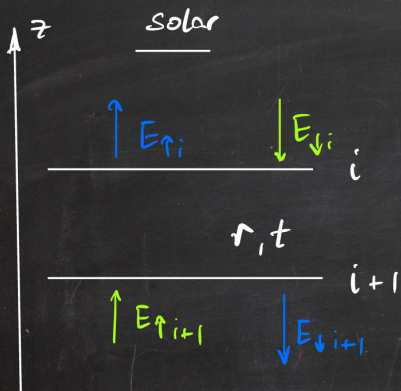 z
solar
E↑i
E↓i
i
r, t
i+1
E↑i+1
E↓i+1